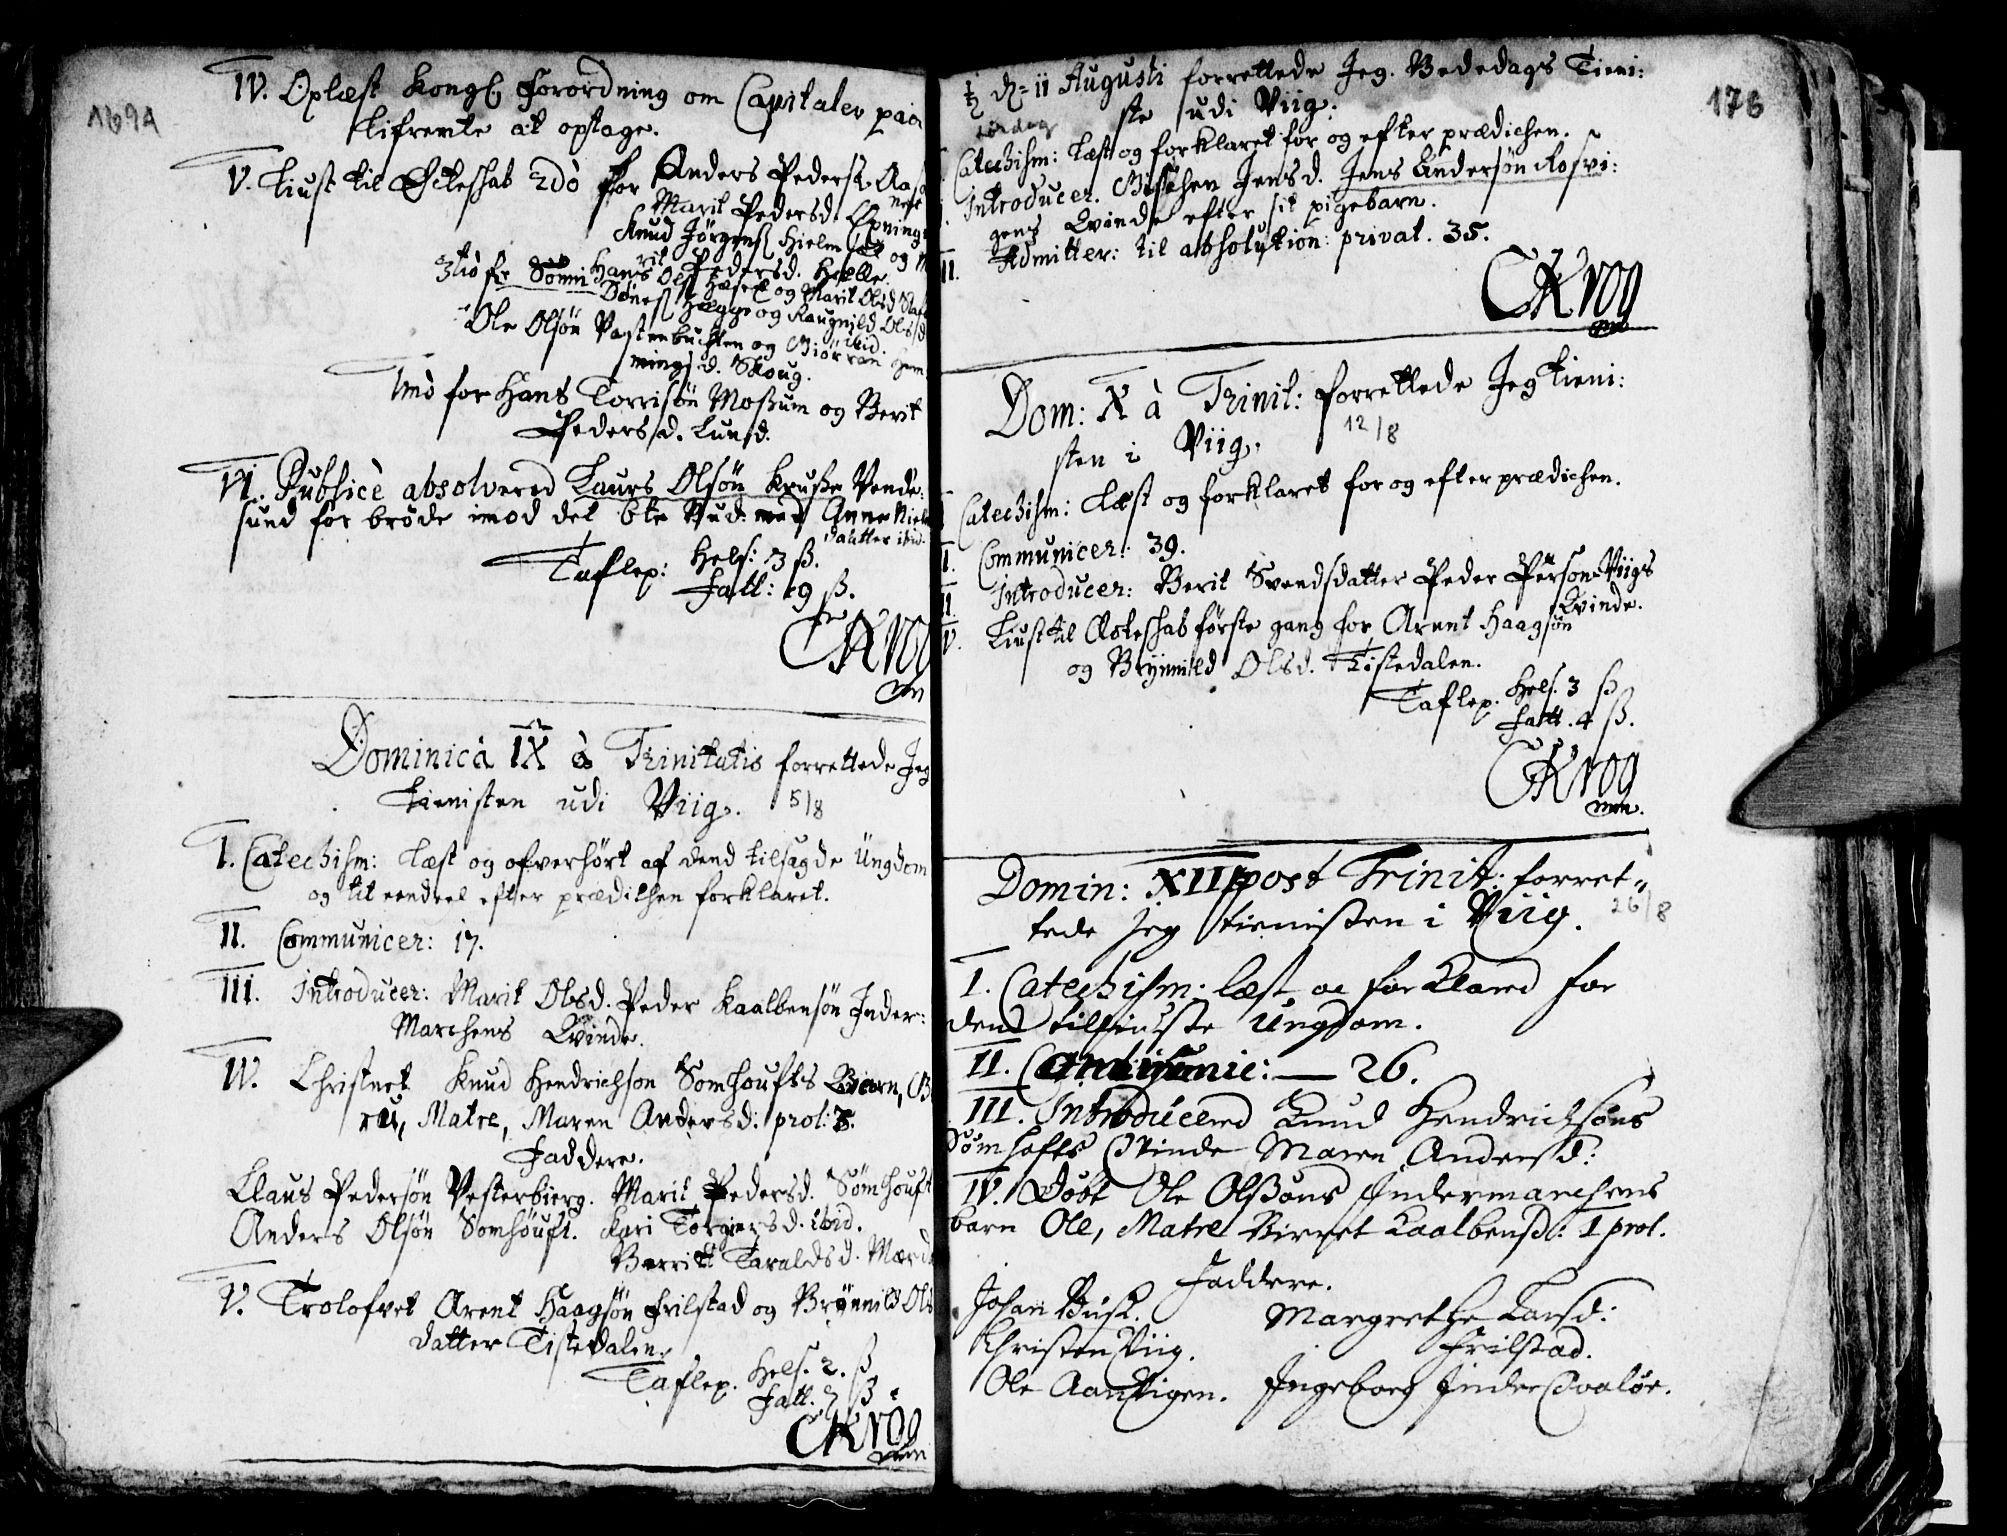 1694
IV. Oplæst Kongl: Forordning om Capitaler paa
Lifrente at optage.
V. Liust til Ecteskab 2dò for Anders Peders:
Marit Pedersd.
Knud Jörgens: Hielm og
Pedersd. Hælle.
3tiò fr Hans Ols: og Marit Olsd
Hægge og Raugnild Olsd
Ole Olsön Vastenbuchten og Giörran Hem
mingsd. Skoug. ibid.
for Hans Torrisön Moßum og Berit
Pedersd. Lund.
VI. Publicè absolvered Laurs Olsön Kruße Vende:
sund for bröde imod det 6te Bud: med Anne Niels
datter ibid.
Taflep: Hels: 3 ß.
Fatt: 19 ß.
CKrog
mn
Dominicà IX à Trinitatis forrettede Jeg
tienisten udi Viig. 5/8
I. Catechism: læst og ofverhört af dend tilsagde Ungdom
og til eendeel efter prædichen forklaret.
II. Communicer: 17.
III. Introducer: Marit Olsd. Peder Kaalbensön Inder:
Marchens Qvinde.
IV. Christnet Knud Hendrichson Somhoufts Biörn,
Matre, Maren Andersd: prol: 3.
Faddere.
Claus Pedersön Vesterbierg. Marit Pedersd. Sömhouft
Anders Olsön Somhöuft. Kari Torgiersd. ibid.
Berritt Taraldsd. Mærd
V. Trolofvet Arent Haagsön Frilstad og Brÿnnild Ols
datter Tistedalen.
Taflep. Hels. 2. ß
Fatt: 7 ß.
CKrog
mn
176
dn 11 Augusti forrettede Jeg. Bededags Tieni:
ste udi Viig.
lördag
Catechism: læst og forklaret for og efter prædichen.
Introducer. Jensd. Jens Andersön Rosvi:
gens Qvinde efter sit pigebarn.
II. Admitter: til absolution: privat. 35.
CKrog
mn
Dom: X à Trinit: forrettede Jeg tieni:
sten i Viig. 12/8
Catechism: læst og forklaret for og efter prædichen.
II. Communicer: 39.
III. Introducer: Berit Svendsdatter Peder Pärson Viigs
Qvinde.
IV. Liust til Ecteskab förste gang for Arent Haagsön
og Brÿnnild Olsd. Tistedalen.
Taflep. Hels. 3 ß
Fatt. 4 ß.
CKrog
mn.
Domin: XII post Trinit: forret=
tede Jeg tienisten i Viig. 26/8
I. Catechism: læst oc forklared for
dend tilliuste Ungdom.
II. Communic: — 26.
III. Introducered Knud Hendrichsöns
Sömhofts Qvinde Maren Andersd:
IV. Döbt Ole Olßöns Indermarchens
barn Ole, Matre Birret Kaalbensd: I prol.
Faddere.
Johan Busk. Margrethe Larsd:
Christen Viig. Frilstad.
Ole Aanvigen. Ingeborg Inder Qvalöe.